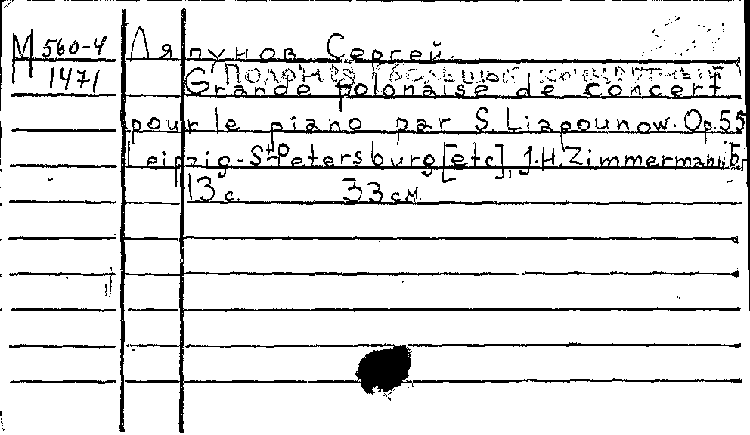 М 560-4 Ляпунов Сергей.
1471 Полонез (большой концертный)
Grande polonaise de concert
pour le piano par S. Liapounow. Op. 55
Leipzig-St-Petersburg [etc], J.H. Zimmermann, Б.г.
13 с. 33 см.